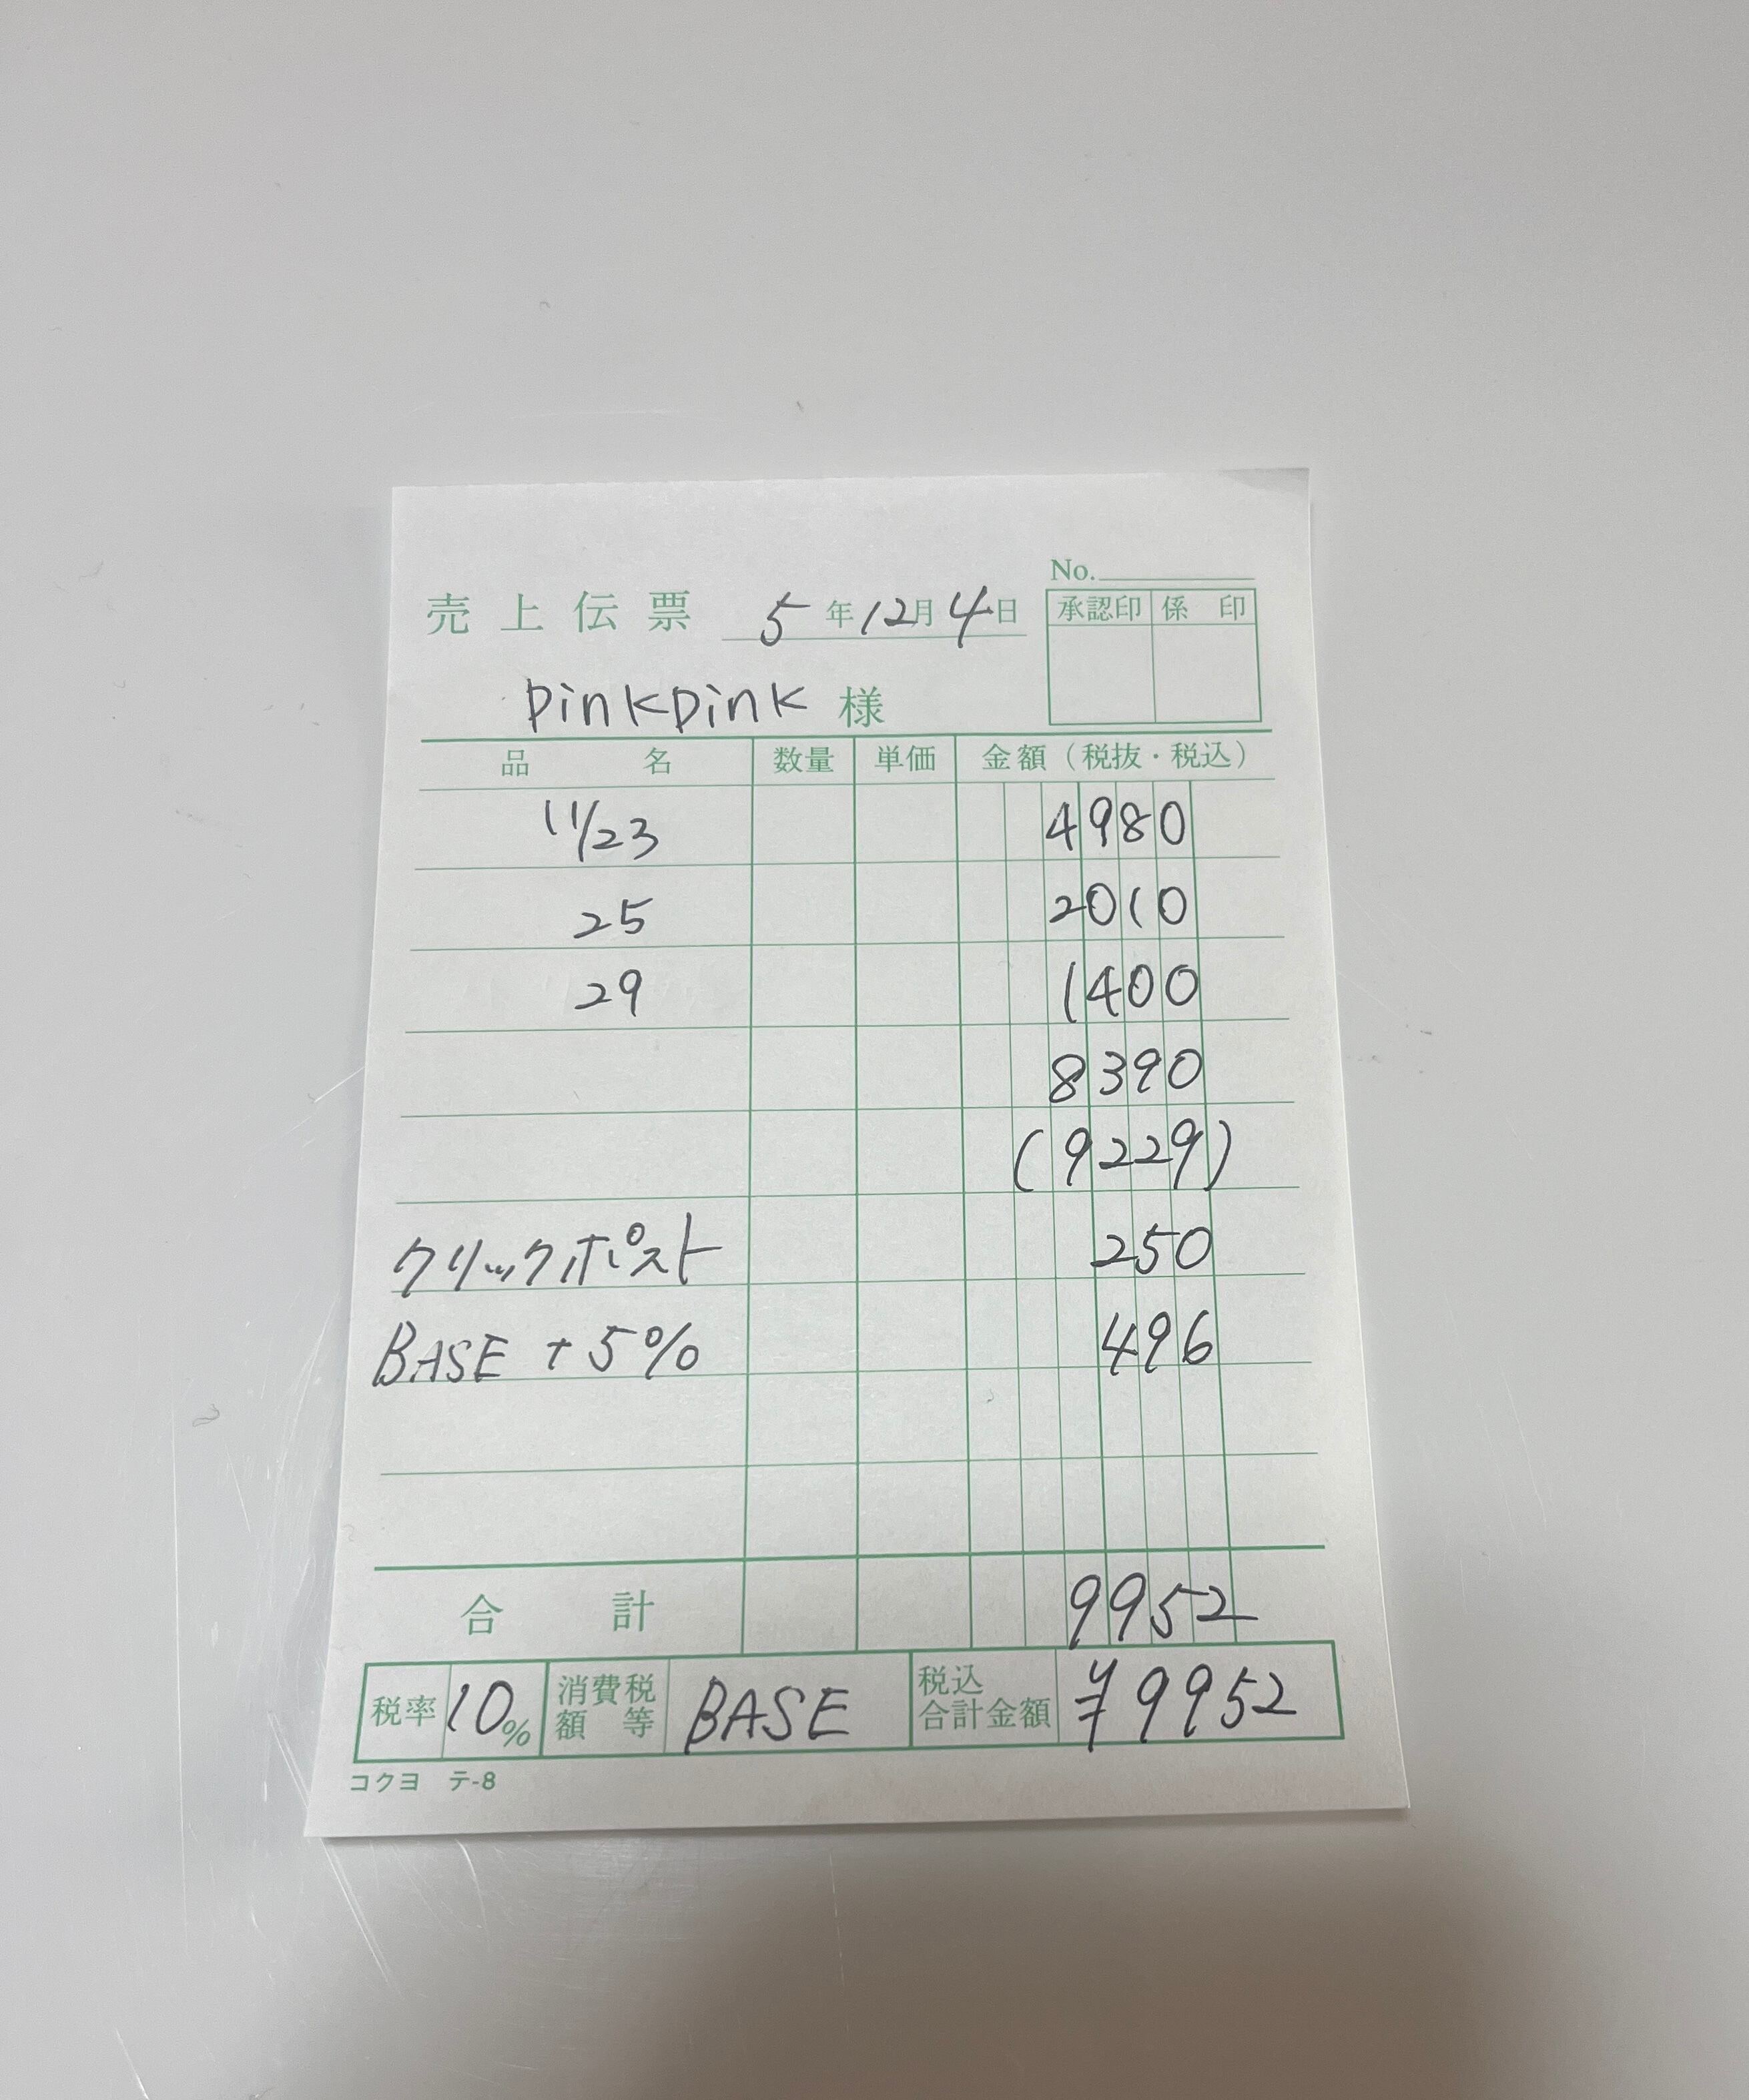 No.
売上伝票 5年12月4日
承認印 係印
pinkpink 様
品名 数量 単価 金額（税抜・税込）
11/23 4980
25 2010
29 1400
8390
(9229)
クリックポスト 250
BASE + 5% 496
合計 9952
税率 10% 消費税額等 BASE 税込合計金額 ¥9952
コクヨ テ-8